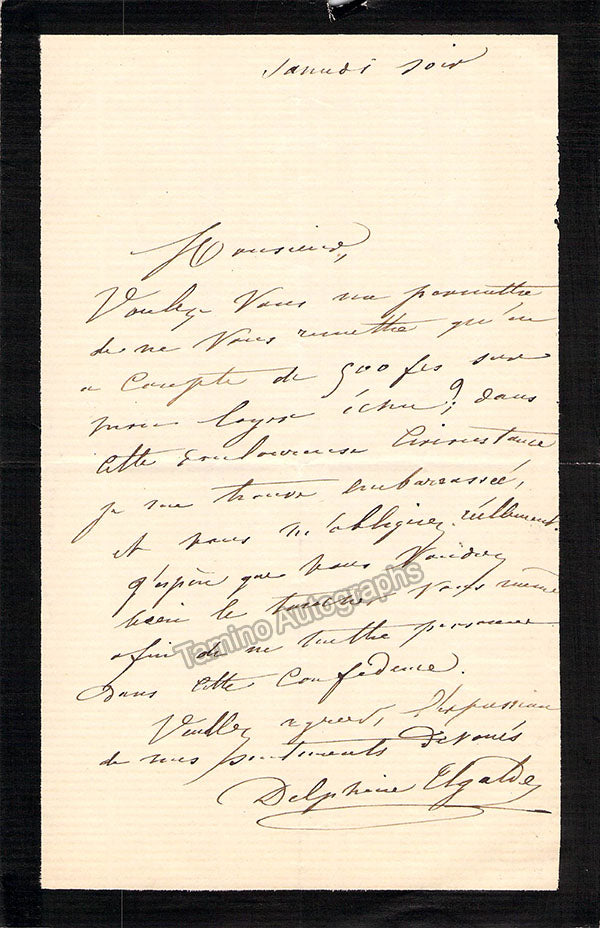 Samedi soir
Monsieur,
Voulez Vous me permettre
de ne Vous remettre qu'un
a Compte de 500 frs sur
mon loyer échu? dans
cette douloureuse Circonstance
je me trouve embarassée,
et vous m'obligerez réellement.
J'espère que vous Voudrez
bien le toucher Vous même
afin de ne mettre personne
dans cette Confidence.
Veuillez agréer, l'expression
de mes sentiments Dévoués
Delphine Ugalde
Tamino Autographs